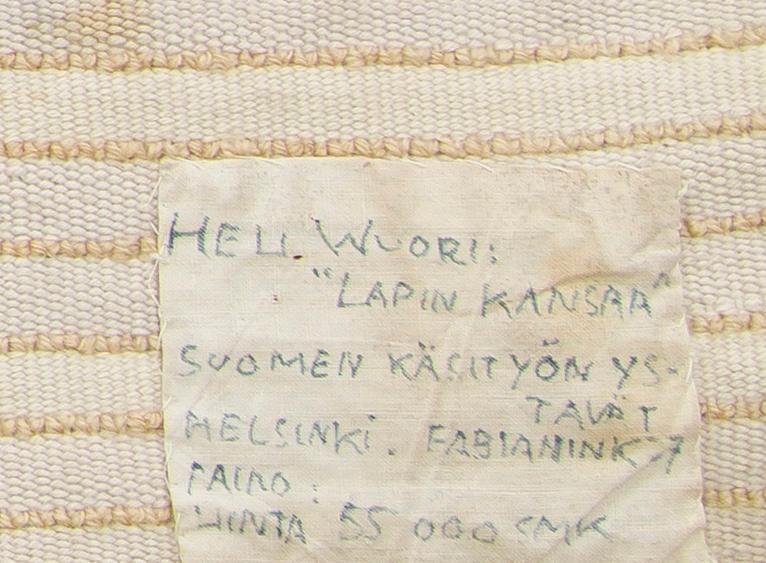 HELI WUORI:
"LAPIN KANSAA"
SUOMEN KÄSITYÖN YS-
TÄVÄT
HELSINKI. FABIANINK 7
PAINO:
HINTA 55 000 SMK